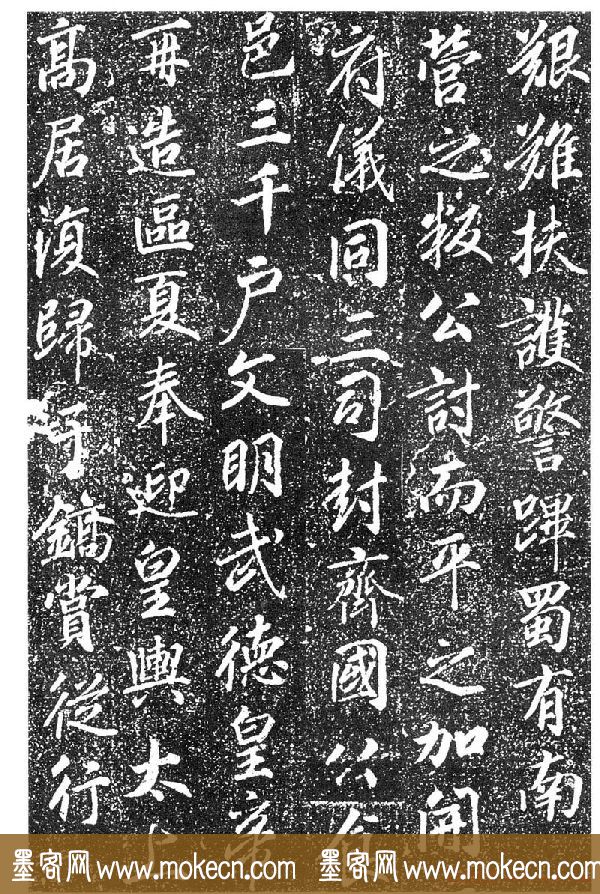 艱難扶護警蹕蜀有南
營之叛公討而平之加開
府儀同三司封齊國公食
邑三千戶文明武德皇帝
再造區夏奉迎皇輿太上
高居復歸于鎬賞從行
墨客网 www.mokecn.com 墨客网 www.mokecn.com